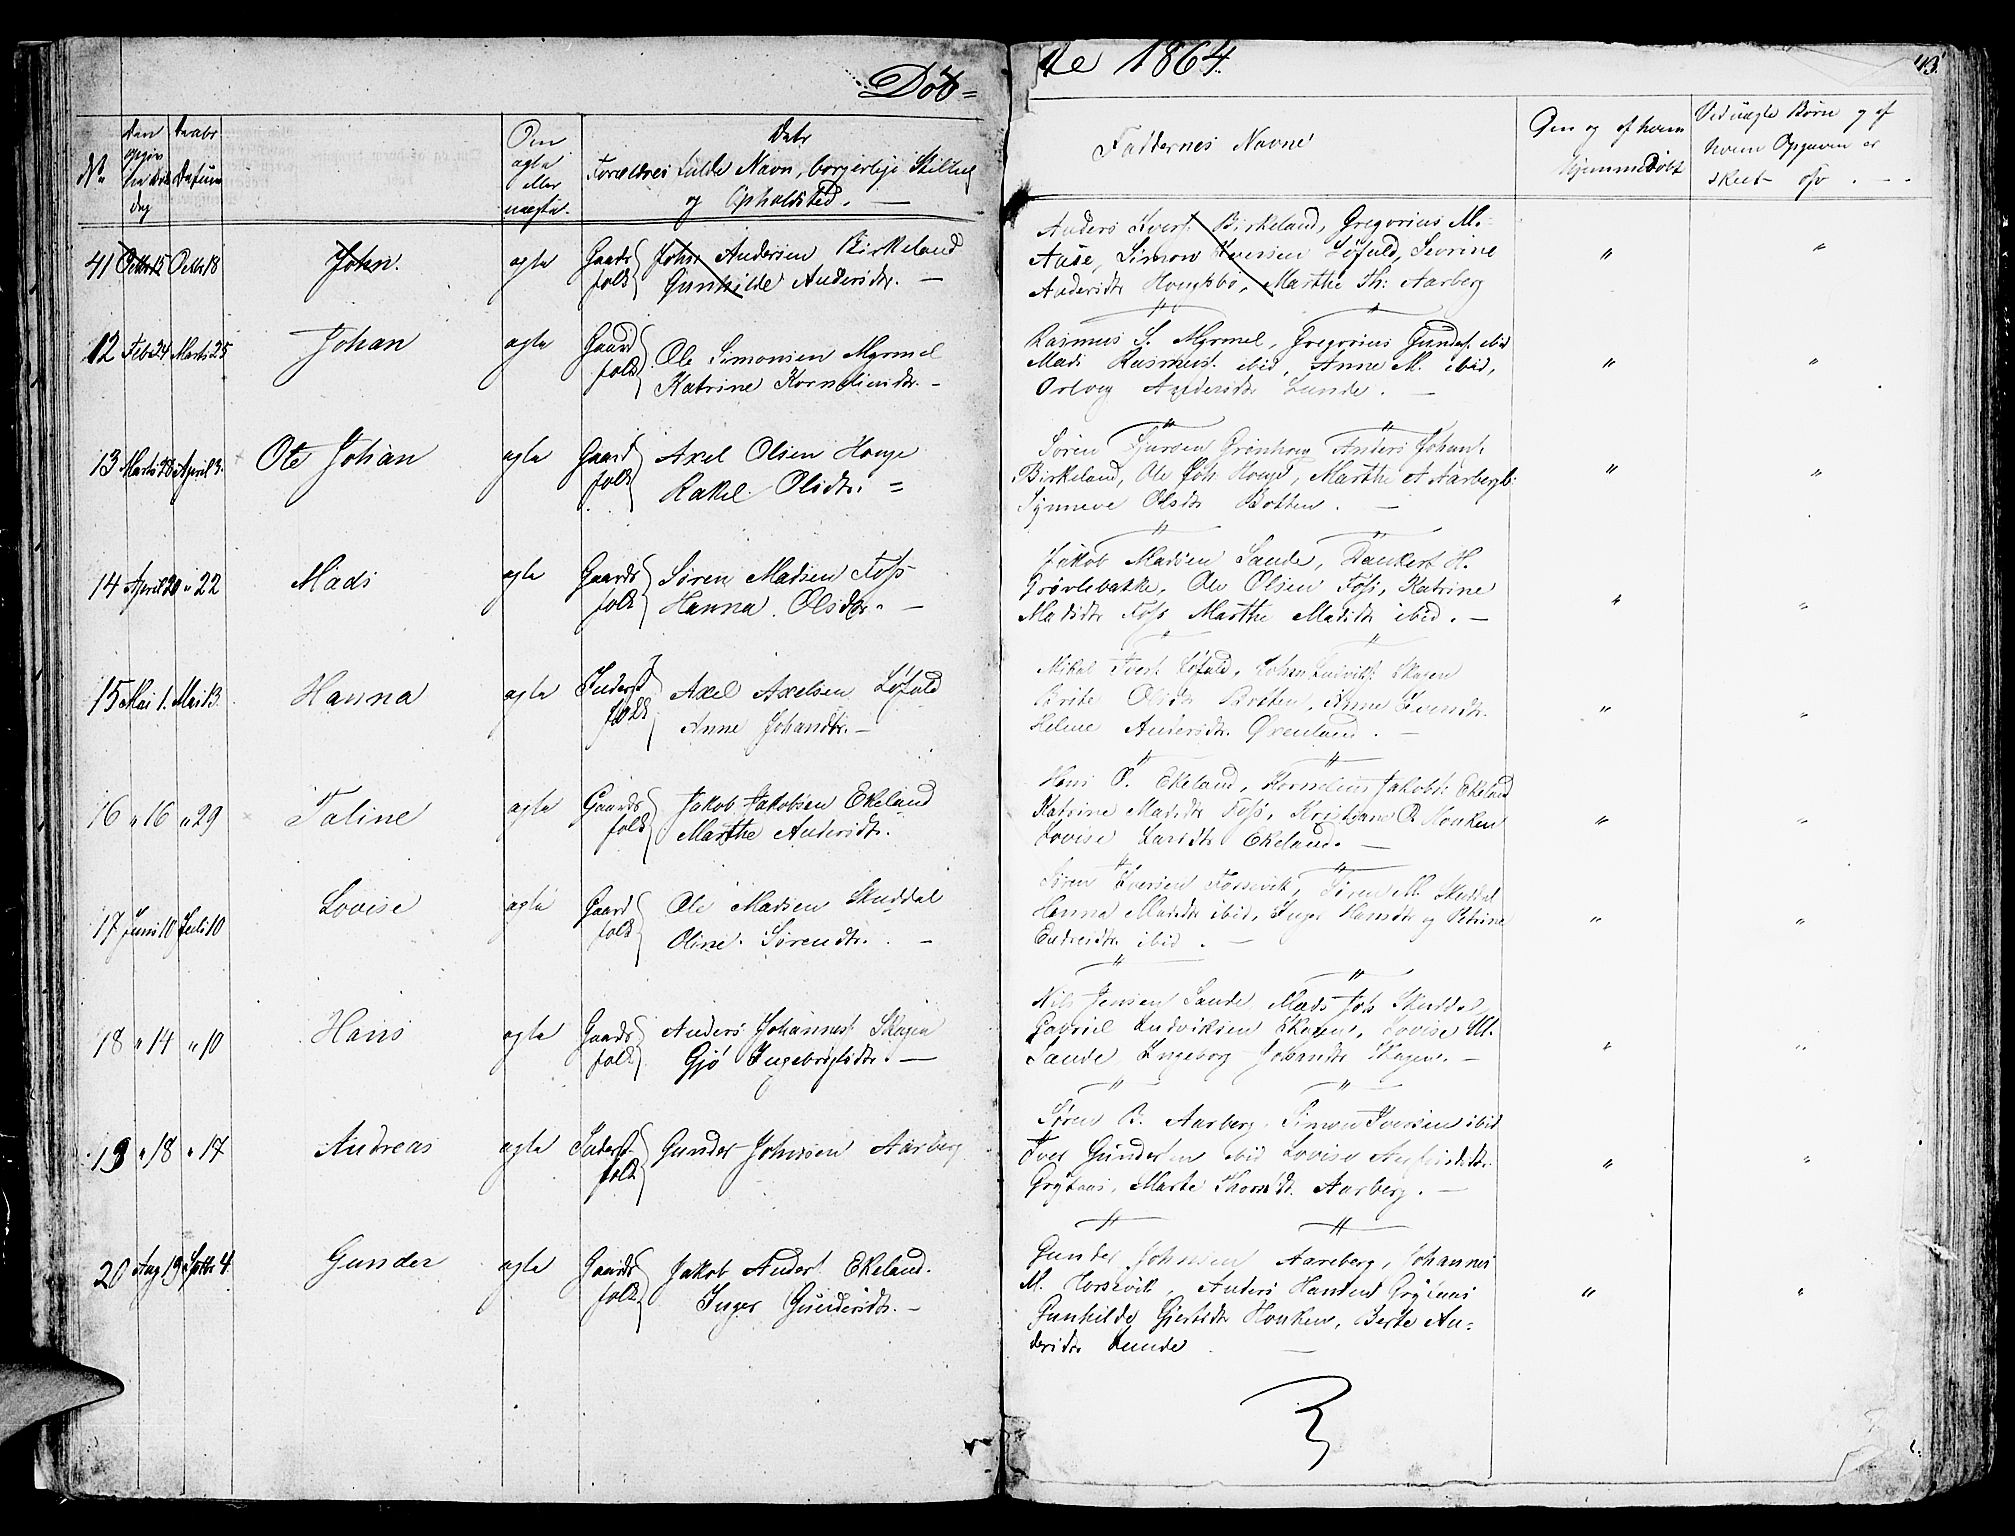 Døb=
te 1864.
43.
No.
Den opgivne Føds. Dag
Daabs Datum
Den ægte eller uægte.
Dets Forældres fulde Navn, borgerlige Stilling og Opholdsted. —
Faddernes Navne
Om og af hvem Hjemmedøbt
Ved uægte Børn og af hvem Opgaven er skeet osv. — -
41 Octbr 15 Octbr 18 John. ægte Gaardsfolk John Andersen Birkeland
Gunhilde Andersdtr. —
Anders Iverst. Birkeland, Gregorius M.
Aase, Simon Iversen Løfald, Severine
Andersdtr Hougsbø, Marthe Th: Aarberg
12 Feb 24 Marts 25 Johan ægte Gaardfolk Ole Simonsen Myrmel
Katrine Korneliusdtr. -
Rasmus S. Myrmel, Gregorius Gunders. ibid
Mads Rasmus. ibid, Anne M. ibid,
Andersdtr Lunde. —
13 Marts 28 April 3. Ole Johan ægte Gaardfolk Axel Olsen Houge
Rakel Olsdtr. =
Søren Grønhoug Anders Johans.
Birkeland, Ole Joh Houge, Marthe A Aarberg
Synneve Olsdtr Botten. —
14 April 20 " 22 Mads ægte Gaardsfolk Søren Madsen Foss
Hanna Olsdtr. —
Jakob Madsen Sande, Dankert H.
Grøvlebakke, Ole Olsen Foss, Katrine
Madsdtr Foss Marthe Madsdtr ibid. —
15 Mai 1. Mai 13. Hanna ægte Inderstfolk Axel Axelsen Løfald
Anne Johansdtr. —
Mikal Løfald, Johan Ludvikss Skagen
Brite Olsdtr Botten, Anne
Helene Andersdtr Øvenland. —
16 " 16 " 29 Taline ægte Gaardsfolk Jakob Jakobsen Ekeland
Marthe Andersdtr.
Hans O. Ekeland, Kornelius Jakobs: Ekeland
Katrine Madsdtr Foss, Kristiane O. Houken
Lovise Larsdtr Ekeland. —
17 Juni 10 Juli 10 Lovise ægte Gaardfolk Ole Madsen Skuddal
Oline Sørendtr. —
Søren Iversen Fossevik, Søren M. Skuddal
Hanna Madsdtr ibid, Inger Hansdtr og Petrine
Endresdtr ibid. —
18 " 14 " 10 Hans ægte Gaardsfolk Anders Johannest. Skagen
Gjø Ingebrigtsdtr. —
Nils Jensen Sande, Mads Joh Skuddal,
Gabriel Ludviksen Skagen, Lovise M.
Sande, Ingeborg Johansdtr Skagen. —
19 " 18 " 17 Andreas ægte Inderstfolk Gunder Johnsen Aarberg
Søren B. Aarberg, Simon Iversen ibid
Iver Gundersen ibid Lovise Andersdtr.
Grytaas, Marte Thomsdt. Aarberg. —
20 Aug 19 Septbr 4. Gunder ægte Gaardsfolk Jakob Anders. Ekeland.
Inger Gundersdtr. —
Gunder Johnsen Aareberg, Johannes
M. Horsevik, Anders Hansen Grytaas
Gunhilde Gjertsdtr Houken, Berte An=
dersdtr Lunde. —